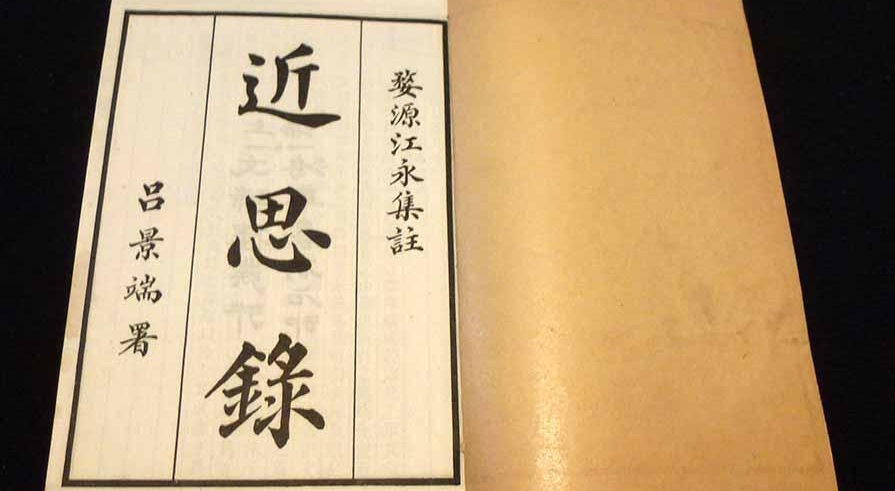 婺源江永集註
近思錄
吕景端署